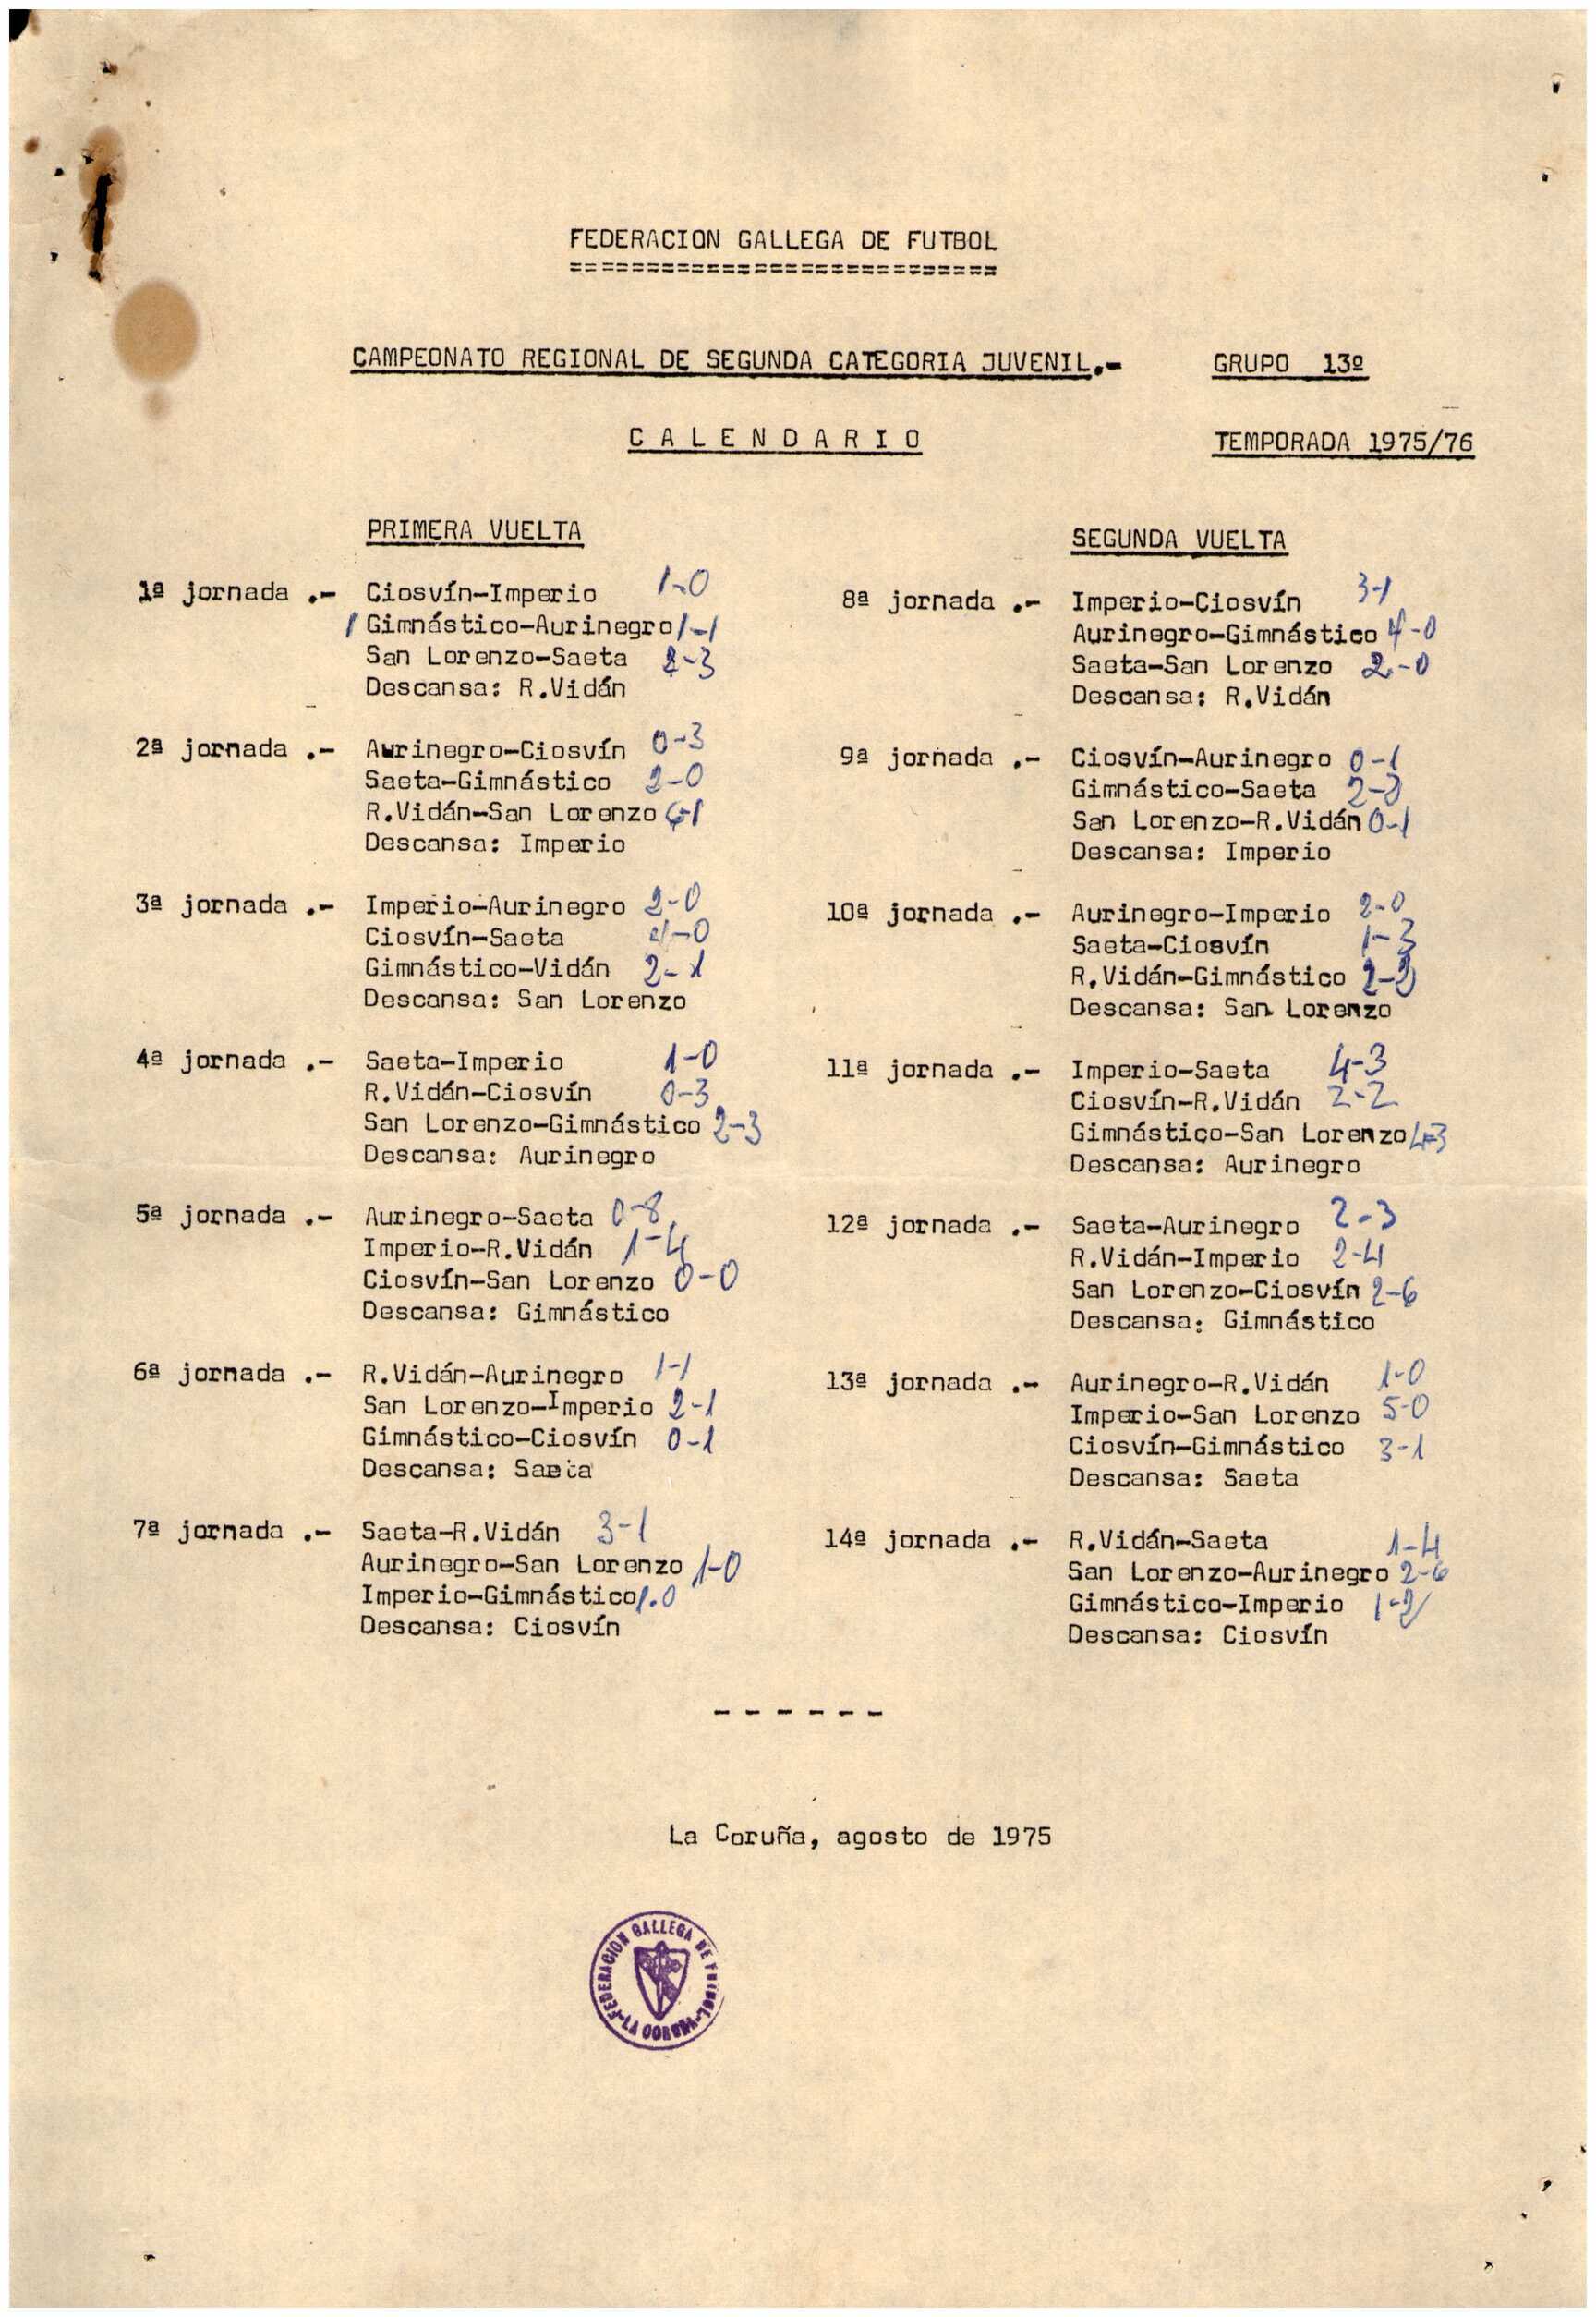 FEDERACION GALLEGA DE FUTBOL
============================
CAMPEONATO REGIONAL DE SEGUNDA CATEGORIA JUVENIL.- GRUPO 13º
CALENDARIO TEMPORADA 1975/76
PRIMERA VUELTA
1ª jornada .- Ciosvín-Imperio 1-0
Gimnástico-Aurinegro 1-1
San Lorenzo-Saeta 2-3
Descansa: R.Vidán
2ª jornada .- Aurinegro-Ciosvín 0-3
Saeta-Gimnástico 2-0
R.Vidán-San Lorenzo
Descansa: Imperio
3ª jornada .- Imperio-Aurinegro 2-0
Ciosvín-Saeta
Gimnástico-Vidán 2-1
Descansa: San Lorenzo
4ª jornada .- Saeta-Imperio 1-0
R.Vidán-Ciosvín 0-3
San Lorenzo-Gimnástico 2-3
Descansa: Aurinegro
5ª jornada .- Aurinegro-Saeta 0-8
Imperio-R.Vidán 1-4
Ciosvín-San Lorenzo 0-0
Descansa: Gimnástico
6ª jornada .- R.Vidán-Aurinegro 1-1
San Lorenzo-Imperio 2-1
Gimnástico-Ciosvín 0-1
Descansa: Saeta
7ª jornada .- Saeta-R.Vidán 3-1
Aurinegro-San Lorenzo 1-0
Imperio-Gimnástico 1.0
Descansa: Ciosvín
SEGUNDA VUELTA
8ª jornada .- Imperio-Ciosvín 3-1
Aurinegro-Gimnástico 4-0
Saeta-San Lorenzo 2-0
Descansa: R.Vidán
9ª jornada .- Ciosvín-Aurinegro 0-1
Gimnástico-Saeta
San Lorenzo-R.Vidán 0-1
Descansa: Imperio
10ª jornada .- Aurinegro-Imperio 2-0
Saeta-Ciosvín 1-3
R.Vidán-Gimnástico
Descansa: San Lorenzo
11ª jornada .- Imperio-Saeta 4-3
Ciosvín-R.Vidán 2-2
Gimnástico-San Lorenzo 4-3
Descansa: Aurinegro
12ª jornada .- Saeta-Aurinegro 2-3
R.Vidán-Imperio 2-4
San Lorenzo-Ciosvín 2-6
Descansa: Gimnástico
13ª jornada .- Aurinegro-R.Vidán 1-0
Imperio-San Lorenzo 5-0
Ciosvín-Gimnástico 3-1
Descansa: Saeta
14ª jornada .- R.Vidán-Saeta 1-4
San Lorenzo-Aurinegro 2-6
Gimnástico-Imperio 1-2
Descansa: Ciosvín
------
La Coruña, agosto de 1975
FEDERACION GALLEGA DE FUTBOL
-LA CORUÑA-